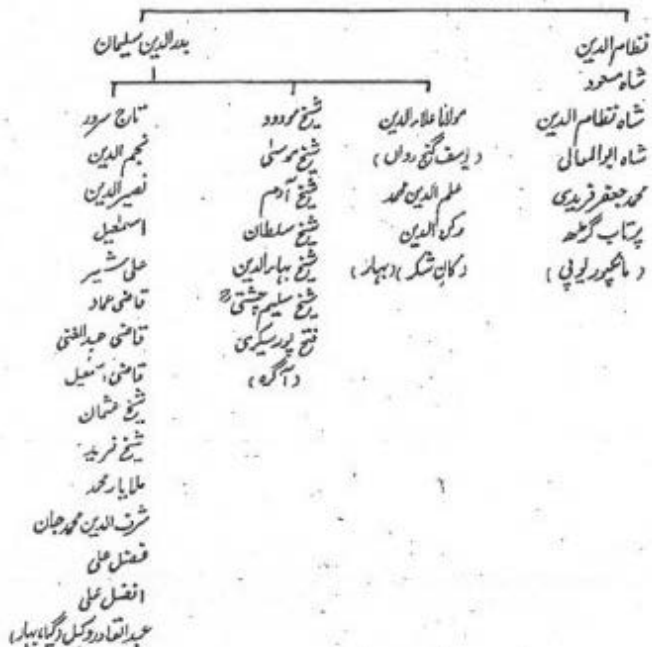 نظام الدین
شاہ مسعود
شاہ نظام الدین
شاہ ابوالمعالی
محمد جعفر فریدی
پرتاب گڑھ
(مانکپور یوپی)
بدرالدین سلیمان
مولانا علاءالدین
(یوسف گنج رواں)
علم الدین محمد
رکن الدین
(کان شکر) (بہار)
شیخ مودود
شیخ موسیٰ
شیخ آدم
شیخ سلطان
شیخ بہارالدین
شیخ سلیم چشتیؒ
فتح پور سیکری
(آگرہ)
تاج سرور
نجم الدین
نصیر الدین
اسمٰعیل
علی شیر
قاضی عماد
قاضی عبدالغنی
قاضی اسمٰعیل
شیخ عثمان
شیخ فرید
ملا یار محمد
شرف الدین محمد جان
فضل علی
افضل علی
عبدالقادر وکیل (گیا، بہار)